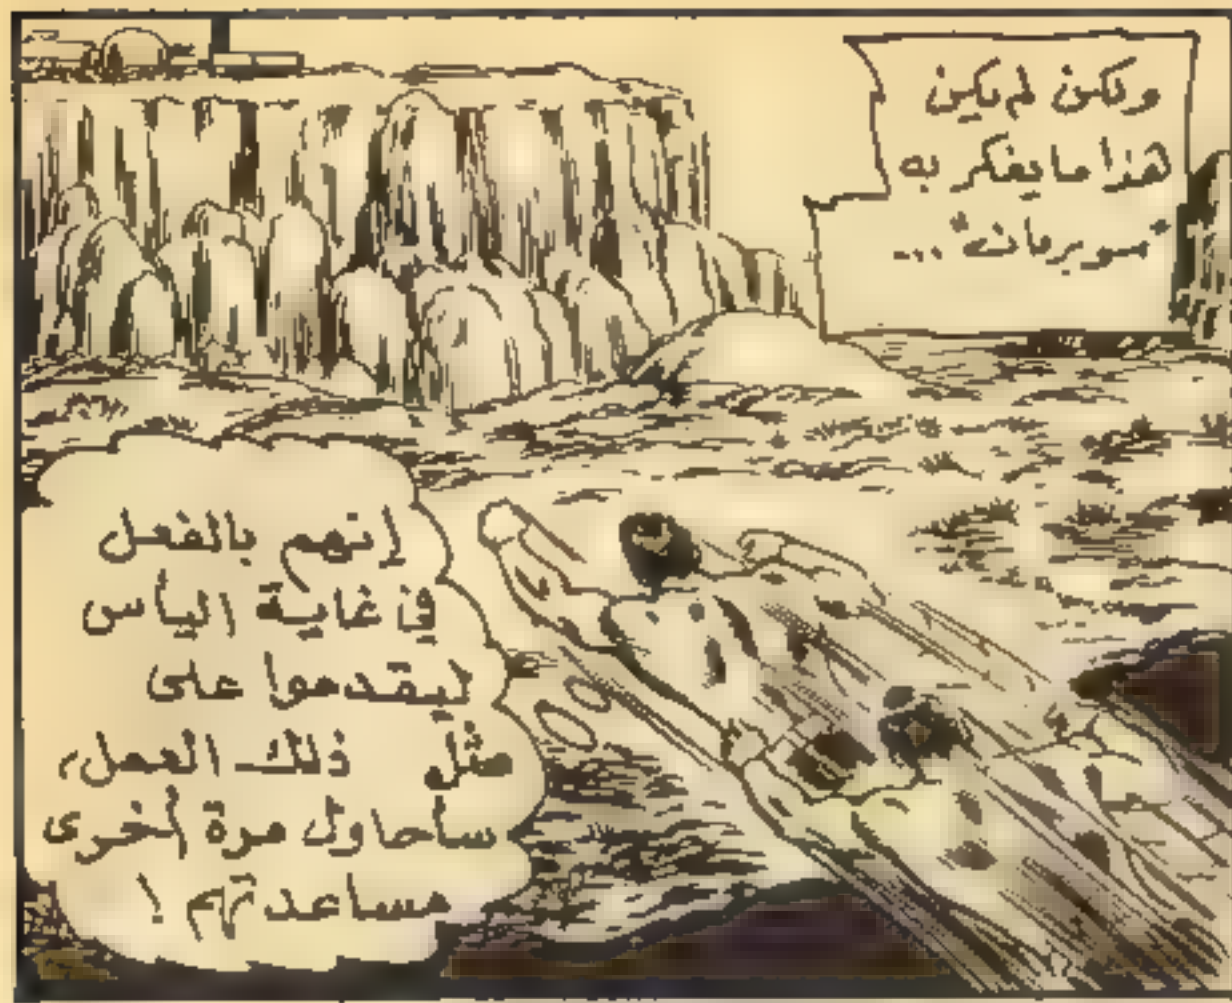 ولكن لم يكن
هذا ما يفكر به
"سوبرمان" ...
إنهم بالفعل
في غاية اليأس
ليقدموا على
مثل ذلك العمل،
سأحاول مرة أخرى
مساعدتهم !